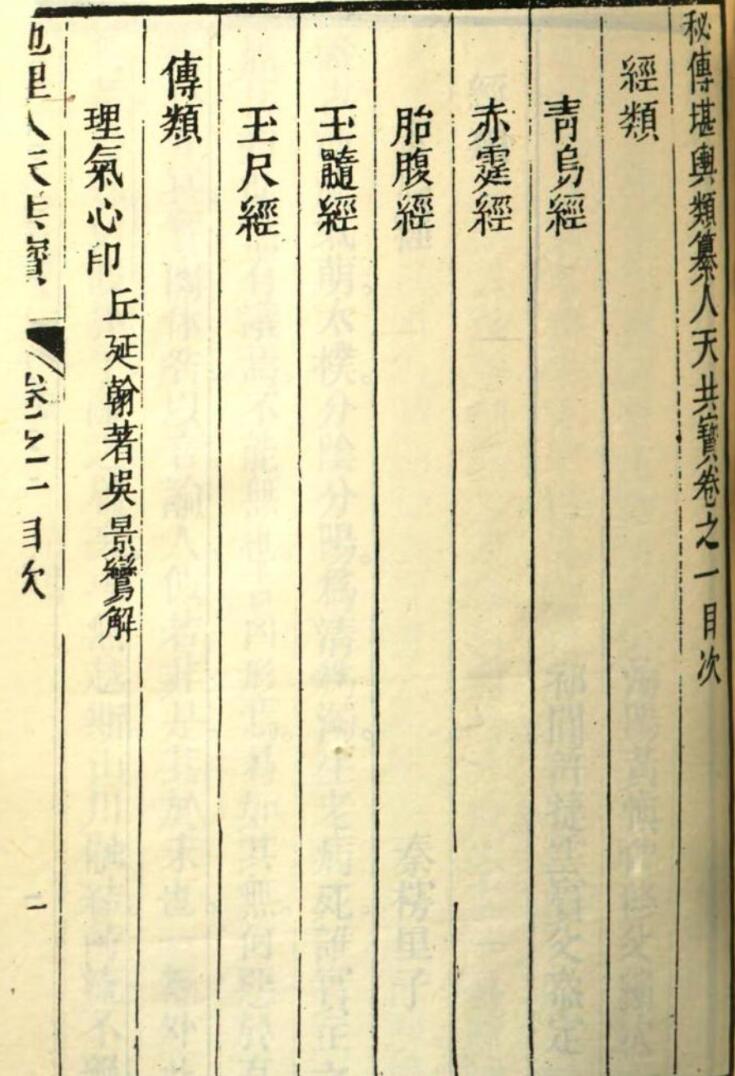 秘傳堪輿類纂人天共寶卷之一目次
經類
青烏經
赤霆經
胎腹經
玉髓經
玉尺經
傳類
理氣心印 丘延翰著吳景鸞解
地理人天共寶 卷之一 目次 一